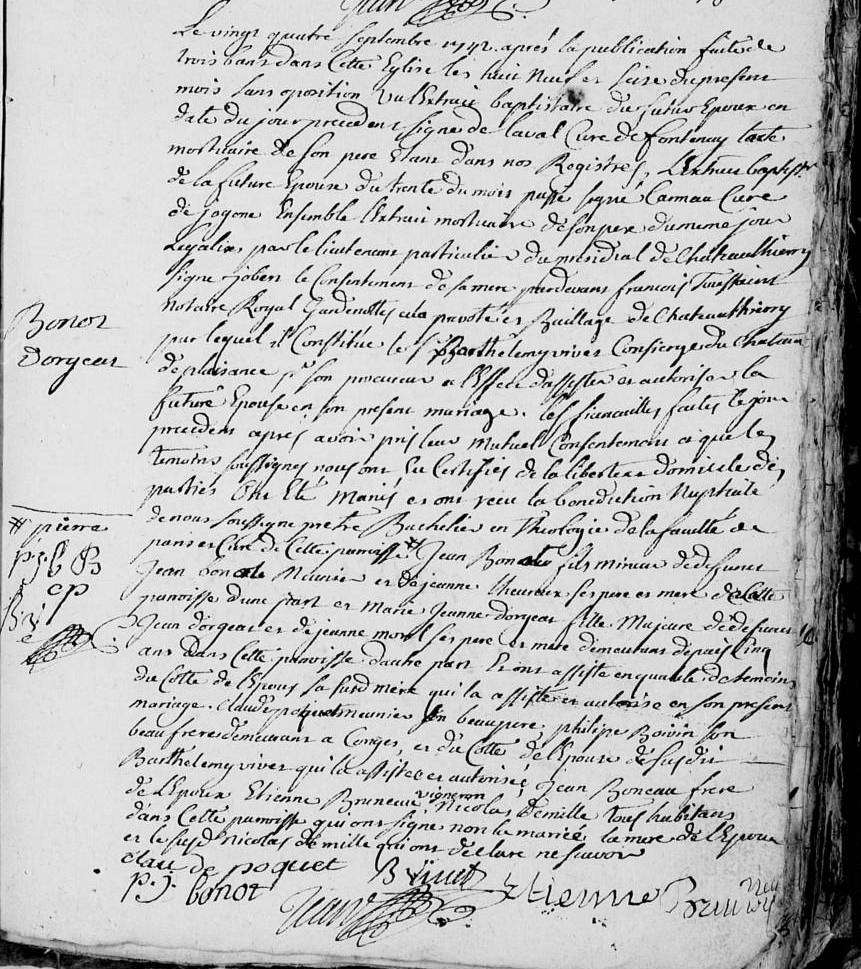 Le vingt quatre Septembre 1742. aprés la publication faite de
trois bans dans Cette Eglise les huit Neuf et Seize du present
mois sans oposition Vu l'Extrait baptistaire du futur Epoux en
date du jour precedent signé de laval Curé de fontenay lacte
mortuaire de son pere Etant dans nos Registres, L'Extrait baptist.
de la future Epouse du trente du mois passé signé Carmau Curé
de jogone Ensemble l'Extrait mortuaire de son pere du meme jour
Legalizé par le lieutenant particulier du presidial de Chateauthierry
signé jobert le Consentement de sa mere pardevant francois Toussaint
Notaire Royal Gardenottes en la prevoté et Baillage de Chateauthierry
par lequel Constitüe le Sr Barthelemy vivet Consierge du Chateau
de plaisance pr son procureur a l'Effet d'assister et autoriser la
future Epouse en son present mariage. les fiancailles faites le jour
precedent aprés avoir pris leur mutuel Consentement et que les
temoins soussignés nous ont Eu Certifiés de la liberté et domicile des
parties Ont Eté Mariés et ont recu la benediction Nuptiale
de nous soussigné pretre Bachelier en Theologie de la faculté de
Bonot
Dorgeat
paris et Curé de Cette paroisse # Jean Bonot fils mineur de defunt
Jean Bonot Meunier et de jeanne Lheureux ses pere et mere de Cette
paroisse d'une part et Marie Jeanne Dorgeat fille Majeure de defunt
# pierre
p. j. b B
cp
B. v
Jean Dorgeat et de jeanne morel ses pere et mere demeurant depuis Cinq
ans dans Cette paroisse dautre part Et ont assisté en qualité de temoins
du Cotté de l'Epoux sa susd mere qui la assisté et autorisé en son present
mariage. Claude poquet meunier son beaupere, philipe Boivin son
beaufrere demeurant a Conges, et du Cotté de l'Epouse de susdit
Barthelemy vivet qui la assistée et autorisée, Jean Boneau frere
de L'Epoux Etienne Bruneau vigneron Nicolas Demille tous habitans
dans Cette paroisse qui ont signé non la mariée la mere de l'Epoux
et le susd Nicolas Demille qui ont declaré ne scavoir
Claude poquet B vivet
p. j. bonot Etienne Bruneau